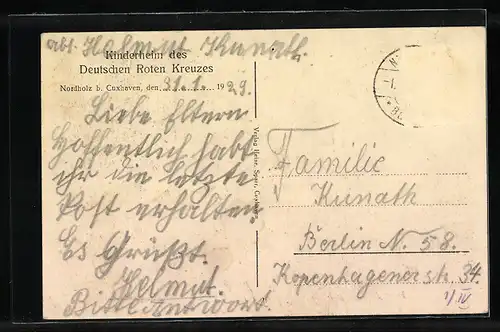 abs. Helmut Kunath.
Kinderheim des
Deutschen Roten Kreuzes
Nordholz b. Cuxhaven, den 31.1. 1929.
Liebe Eltern
Hoffentlich habt
ihr die letzte
Post erhalten.
Es Grüßt.
Helmut.
Bitte Antwort.
Familie
Kunath
Berlin N. 58.
Kopenhagenerstr. 34.
1/IV